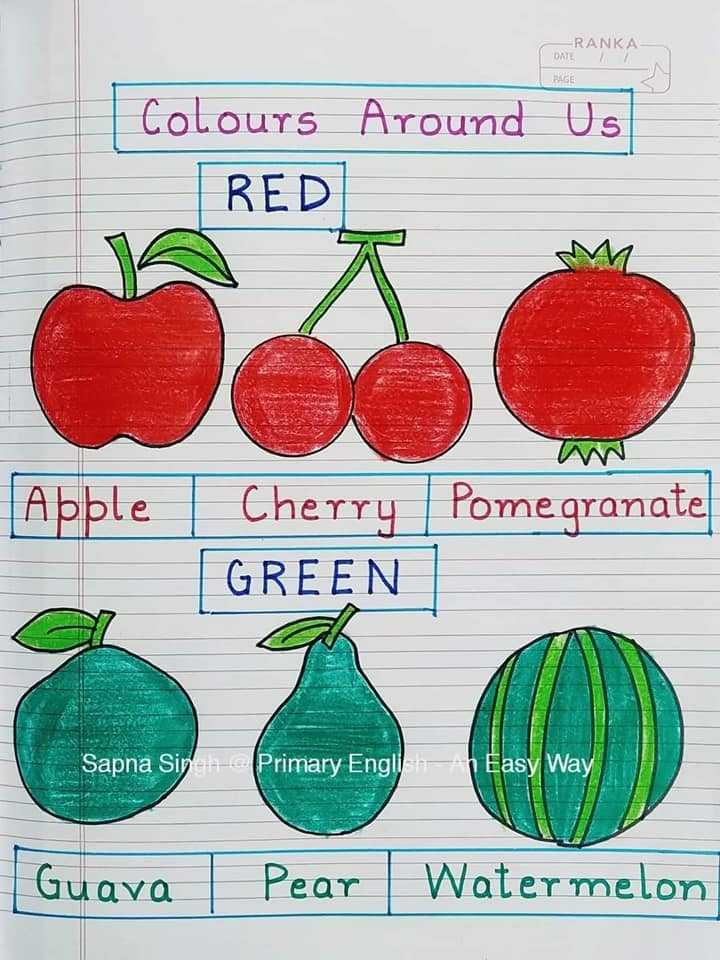 RANKA
DATE / /
PAGE
Colours Around Us
RED
Apple Cherry Pomegranate
GREEN
Sapna Singh @ Primary English - An Easy Way
Guava Pear Watermelon